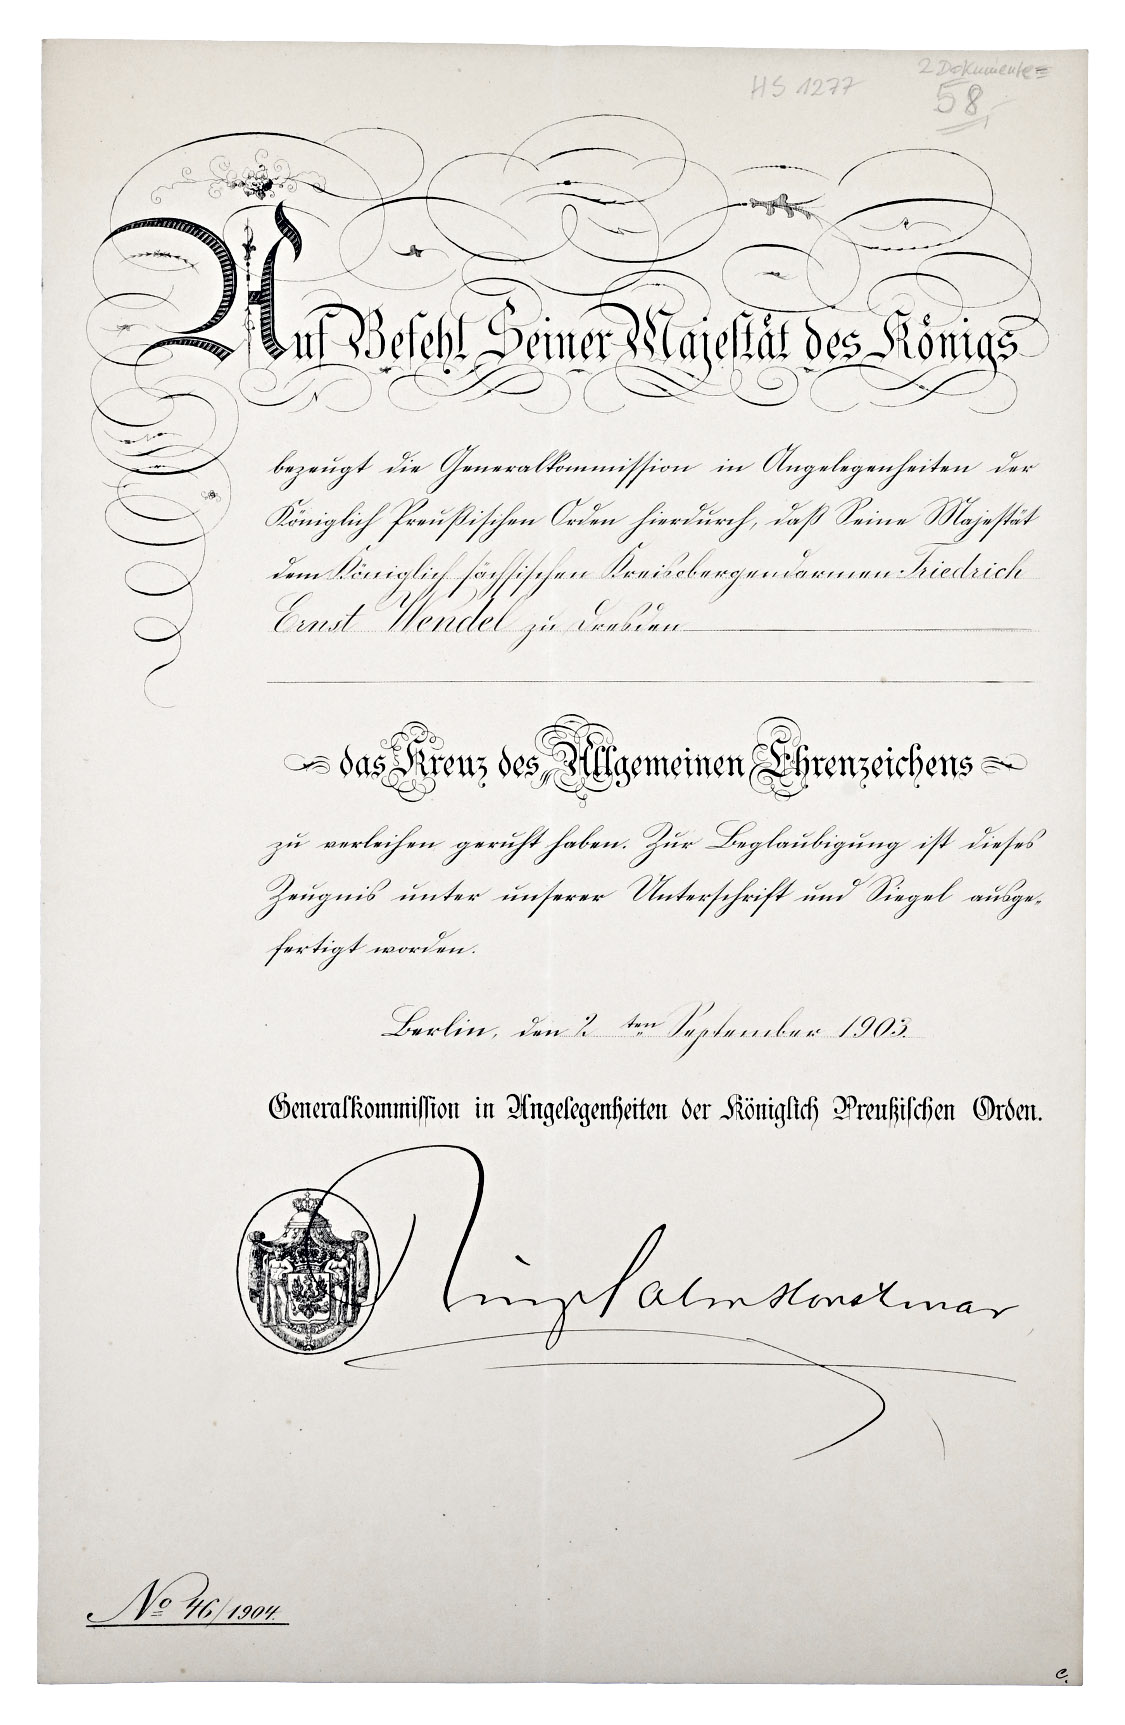 HS 1277
2 Dokumente =
58,-
Auf Befehl Seiner Majestät des Königs
bezeugt die Generalkommission in Angelegenheiten der
Königlich Preußischen Orden hierdurch, daß Seine Majestät
dem Königlich sächsischen Kreisobergendarmen Friedrich
Ernst Wendel zu Dresden
das Kreuz des Allgemeinen Ehrenzeichens
zu verleihen geruht haben. Zur Beglaubigung ist dieses
Zeugnis unter unserer Unterschrift und Siegel ausge-
fertigt worden.
Berlin, den 2ten September 1903.
Generalkommission in Angelegenheiten der Königlich Preußischen Orden.
Salm Horstmar
No 46/1904.
C.